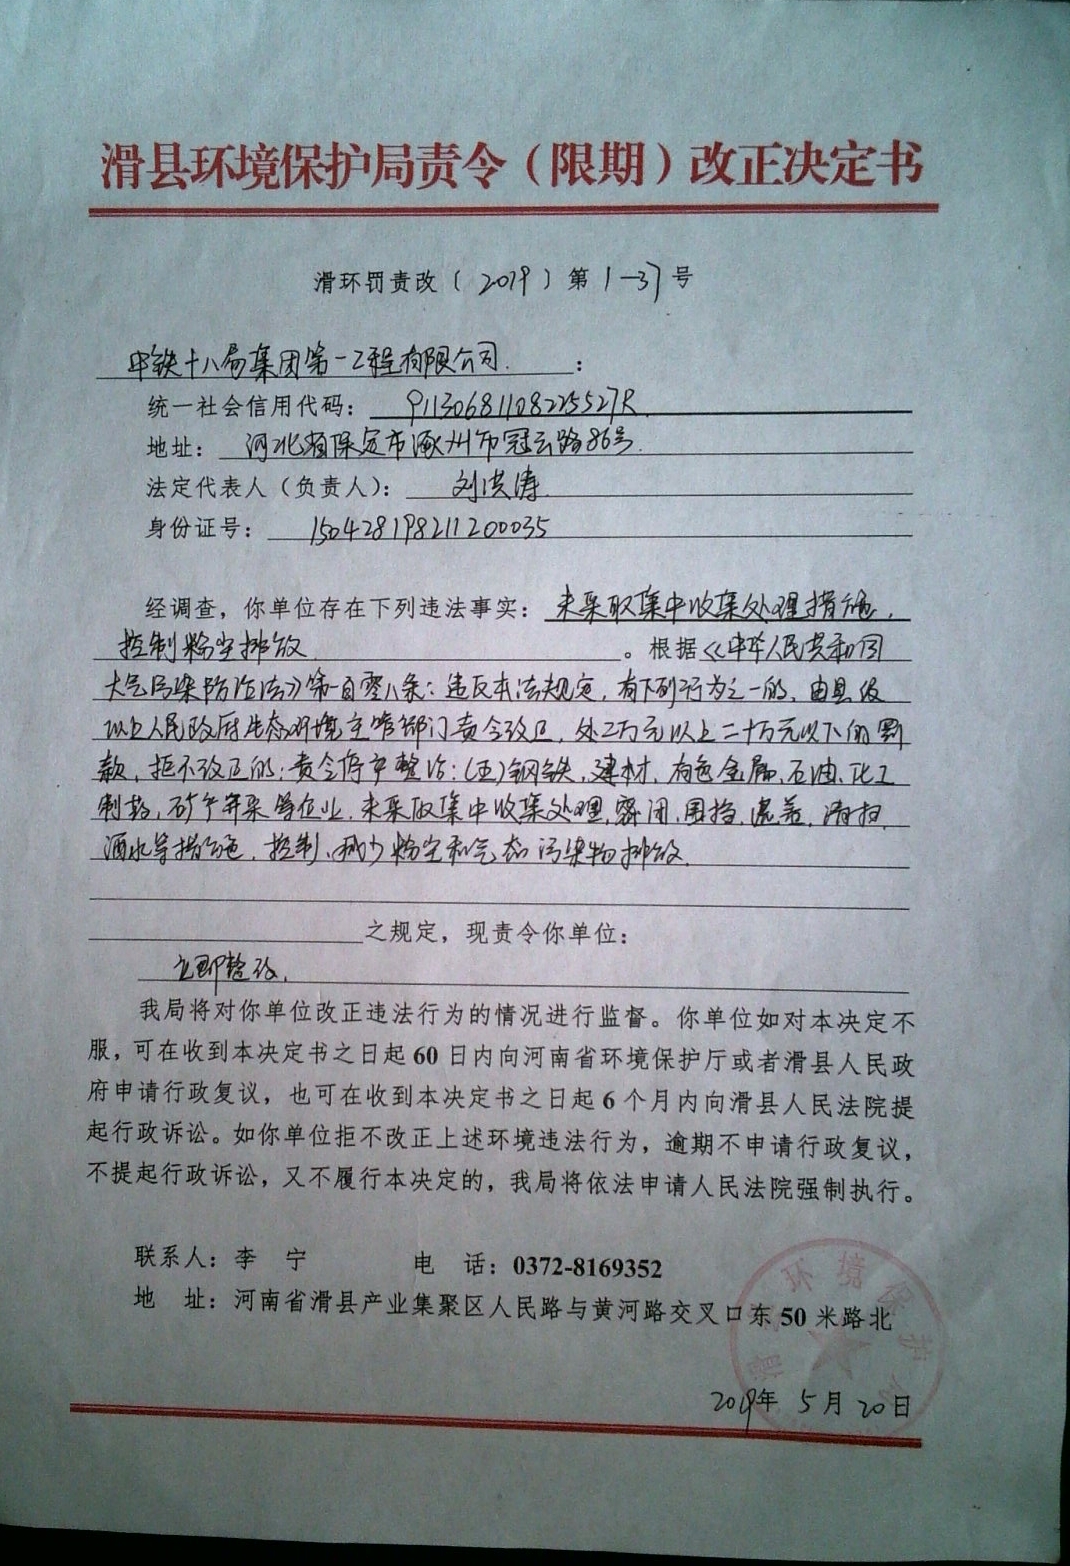 滑县环境保护局责令（限期）改正决定书
滑环罚责改（2019）第1-37号
中铁十八局集团第一工程有限公司：
统一社会信用代码：91130681108225527R
地址：河北省保定市涿州市冠云路86号
法定代表人（负责人）：刘洪涛
身份证号：150428198211200035
经调查，你单位存在下列违法事实：未采取集中收集处理措施，
控制粉尘排放。根据《中华人民共和国
大气污染防治法》第一百零八条：违反本法规定，有下列行为之一的，由县级
以上人民政府生态环境主管部门责令改正，处2万元以上二十万元以下的罚
款，拒不改正的，责令停产整治：（五）钢铁，建材，有色金属，石油，化工
制药，矿产开采等企业，未采取集中收集处理，密闭，围挡，遮盖，清扫，
洒水等措施，控制、减少粉尘和气态污染物排放。
之规定，现责令你单位：
立即整改。
我局将对你单位改正违法行为的情况进行监督。你单位如对本决定不
服，可在收到本决定书之日起60日内向河南省环境保护厅或者滑县人民政
府申请行政复议，也可在收到本决定书之日起6个月内向滑县人民法院提
起行政诉讼。如你单位拒不改正上述环境违法行为，逾期不申请行政复议，
不提起行政诉讼，又不履行本决定的，我局将依法申请人民法院强制执行。
联系人：李 宁 电 话：0372-8169352
地 址：河南省滑县产业集聚区人民路与黄河路交叉口东50米路北
滑县环境保护局
2019年5月20日